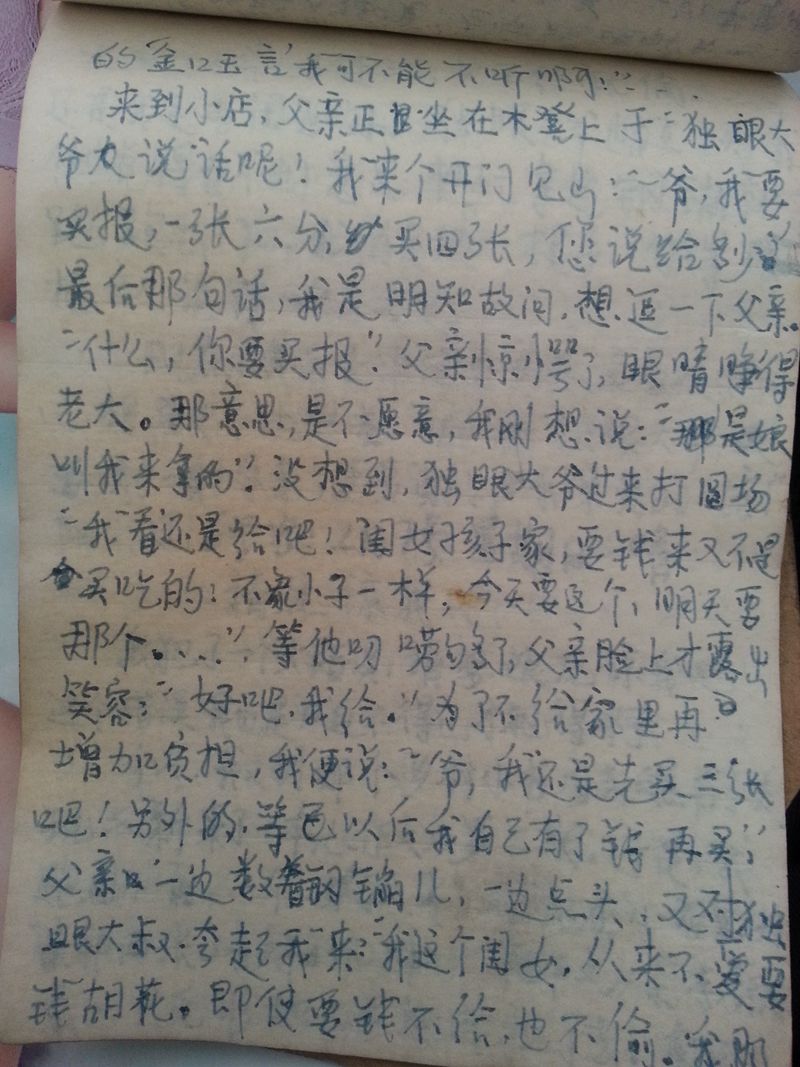 的金口玉言我可不能不听啊！”
来到小店，父亲正坐在木凳上于“独眼大
爷力说话呢！我来个开门见山：“爷，我要
买报，一张六分，买四张，您说给多
最后那句话，我是明知故问，想逗一下父亲。
“什么，你要买报”？父亲惊愕了，眼睛睁得
老大。那意思，是不愿意，我刚想说：“那是娘
叫我来拿的”。没想到，独眼大爷过来打圆场
“我看还是给吧！闺女孩子家，要钱来又不是
买吃的！不象小子一样，今天要这个，明天要
那个。...”，等他叨唠够了，父亲脸上才露出
笑容：“好吧，我给。”为了不给家里再
增加负担，我便说：“爷，我还是先买三张
吧！另外的，等以后我自己有了钱再买”，
父亲一边数着钢镚儿，一边点头，又对独
眼大叔夸起我来：“我这个闺女，从来不爱要
钱胡花。即使要钱不给，也不偷。我那